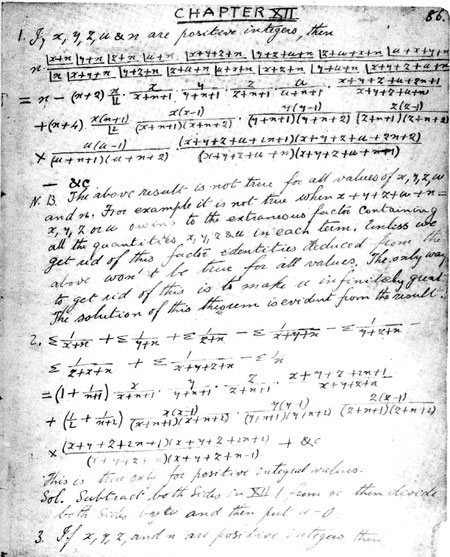 CHAPTER XII
86.
1. If x, y, z, u & n are positive integers, then
n |x+n |y+n |z+n |u+n |x+y+z+n |y+z+u+n |z+u+x+n |u+x+y+n
|n |x+y+n |y+z+n |z+u+n |u+x+n |x+z+n |y+u+n |x+y+z+u+n
= n - (n+2) n/1 · x/x+n+1 · y/y+n+1 · z/z+n+1 · u/u+n+1 · x+y+z+u+2n+1/x+y+z+u+n
+(n+4) · n(n+1)/|2 · x(x-1)/(x+n+1)(x+n+2) · y(y-1)/(y+n+1)(y+n+2) · z(z-1)/(z+n+1)(z+n+2)
× u(u-1)/(u+n+1)(u+n+2) · (x+y+z+u+2n+1)(x+y+z+u+2n+2)/(x+y+z+u+n)(x+y+z+u+n-1)
- &c
N.B. The above result is not true for all values of x, y, z, u
and n. For example it is not true when x+y+z+u+n=
x, y, z or u owing to the extraneous factor containing
all the quantities x, y, z & u in each term. Unless we
get rid of this factor identities deduced from the
above won't be true for all values. The only way
to get rid of this is to make u infinitely great.
The solution of this theorem is evident from the result.
2. Σ 1/x+n + Σ 1/y+n + Σ 1/z+n - Σ 1/x+y+n - Σ 1/y+z+n -
Σ 1/z+x+n + Σ 1/x+y+z+n - Σ 1/n
= (1 + 1/n+1) x/x+n+1 · y/y+n+1 · z/z+n+1 · x+y+z+2n+1/x+y+z+n
+ (1/2 + 1/n+2) x(x-1)/(x+n+1)(x+n+2) · y(y-1)/(y+n+1)(y+n+2) · z(z-1)/(z+n+1)(z+n+2)
× (x+y+z+2n+1)(x+y+z+2n+2)/(x+y+z+n)(x+y+z+n-1) + &c
This is true only for positive integral values.
Sol. Subtract both sides in XII 1 from n then divide
both sides by and then put u=0
3. If x, y, z, and n are positive integers then